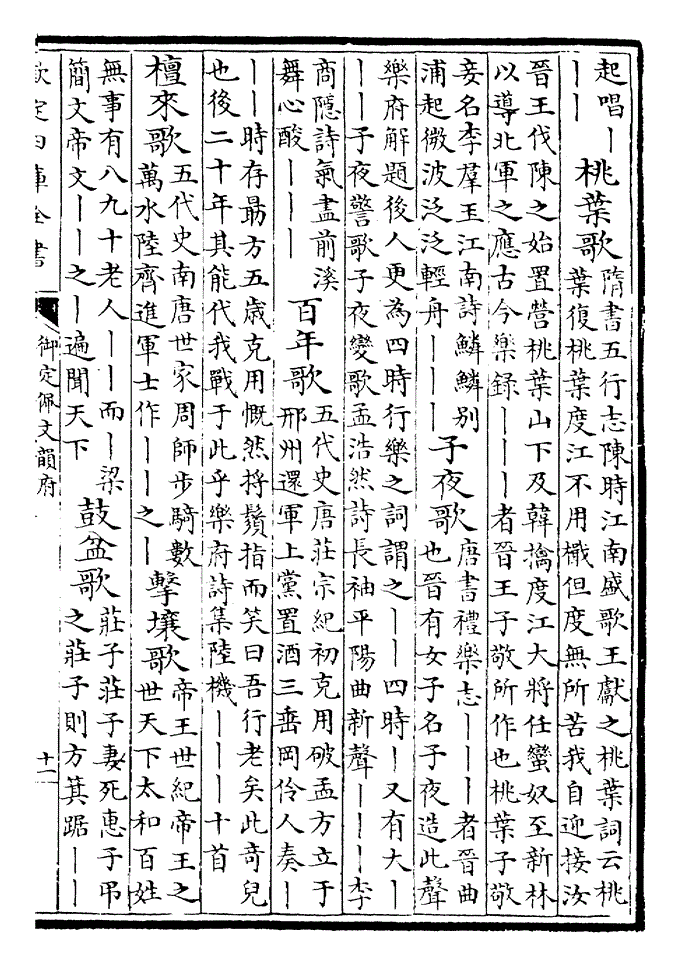 起唱丨
丨丨
桃葉歌
隋書五行志陳時江南盛歌王獻之桃葉詞云桃
葉復桃葉度江不用檝但度無所苦我自迎接汝
晉王伐陳之始置營桃葉山下及韓擒度江大將任蠻奴至新林
以導北軍之應古今樂録丨丨丨者晉王子敬所作也桃葉子敬
妾名李羣玉江南詩鱗鱗別
浦起微波泛泛輕舟丨丨丨
子夜歌
唐書禮樂志丨丨丨者晉曲
也晉有女子名子夜造此聲
樂府解題後人更為四時行樂之詞謂之丨丨四時丨又有大丨
丨丨子夜警歌子夜變歌孟浩然詩長袖平陽曲新聲丨丨丨李
商隱詩氣盡前溪
舞心酸丨丨丨
百年歌
五代史唐莊宗紀初克用破孟方立于
邢州還軍上黨置酒三垂岡伶人奏丨
丨丨時存朂方五歳克用慨然捋鬚指而笑曰吾行老矣此奇兒
也後二十年其能代我戰于此乎樂府詩集陸機丨丨丨十首
檀來歌
五代史南唐世家周師步騎數
萬水陸齊進軍士作丨丨丨之丨
擊壤歌
帝王世紀帝王之
世天下太和百姓
無事有八九十老人丨丨而丨梁
簡文帝文丨丨之丨遍聞天下
鼓盆歌
莊子莊子妻死惠子弔
之莊子則方箕踞丨丨
欽定四庫全書
御定佩文韻府
十二